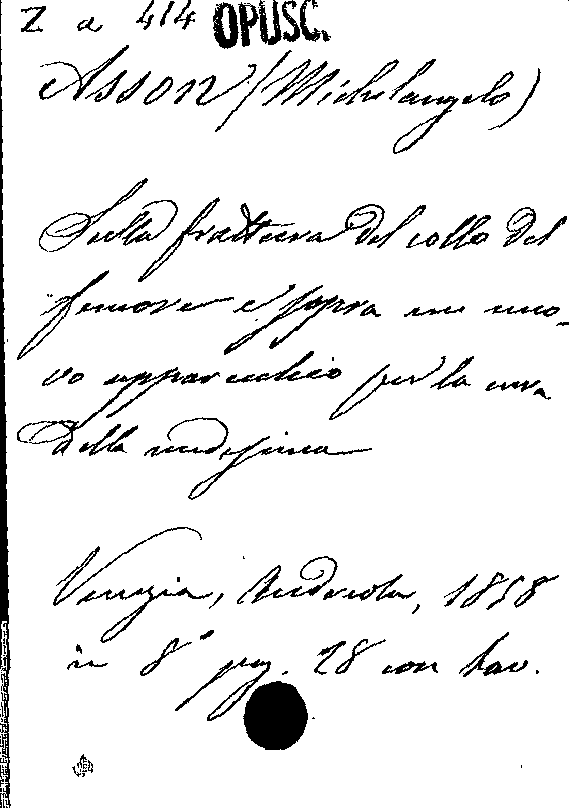 Z a 414 OPUSC.
Asson (Michelangelo)
Sulla frattura del collo del
femore e sopra un nuo-
vo apparecchio per la cura
della medesima
Venezia, Andreola, 1858
in 8° pag. 28 con tav.